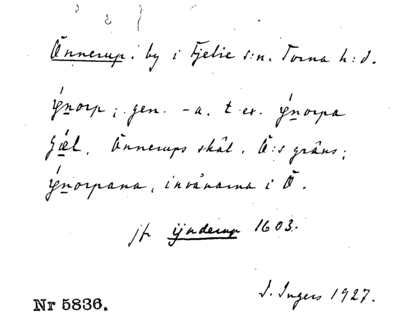 Önnerup: by i Fjelie s:n. Torna h:d.
ýnorp; gen. -a, t ex. ýnorpa
ʃǽl, Önnerups skäl, Ö:s gräns;
ýnorpana, invånarna i Ö.
jfr ijnderup 1603.
I. Ingers 1927.
Nr 5836.